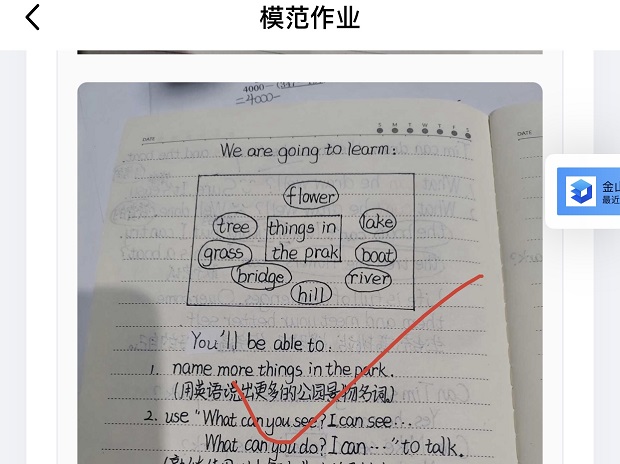 模范作业
4000-
=4000-
DATE
S M T W T F S
DATE
We are going to learm:
flower
tree
things in
lake
grass
the prak
boat
bridge
river
hill
金山
最近
You'll be able to:
1. name more things in the park.
(用英语说出更多的公园景物名词)
2. use "What can you see? I can see...
What can you do? I can..." to talk.